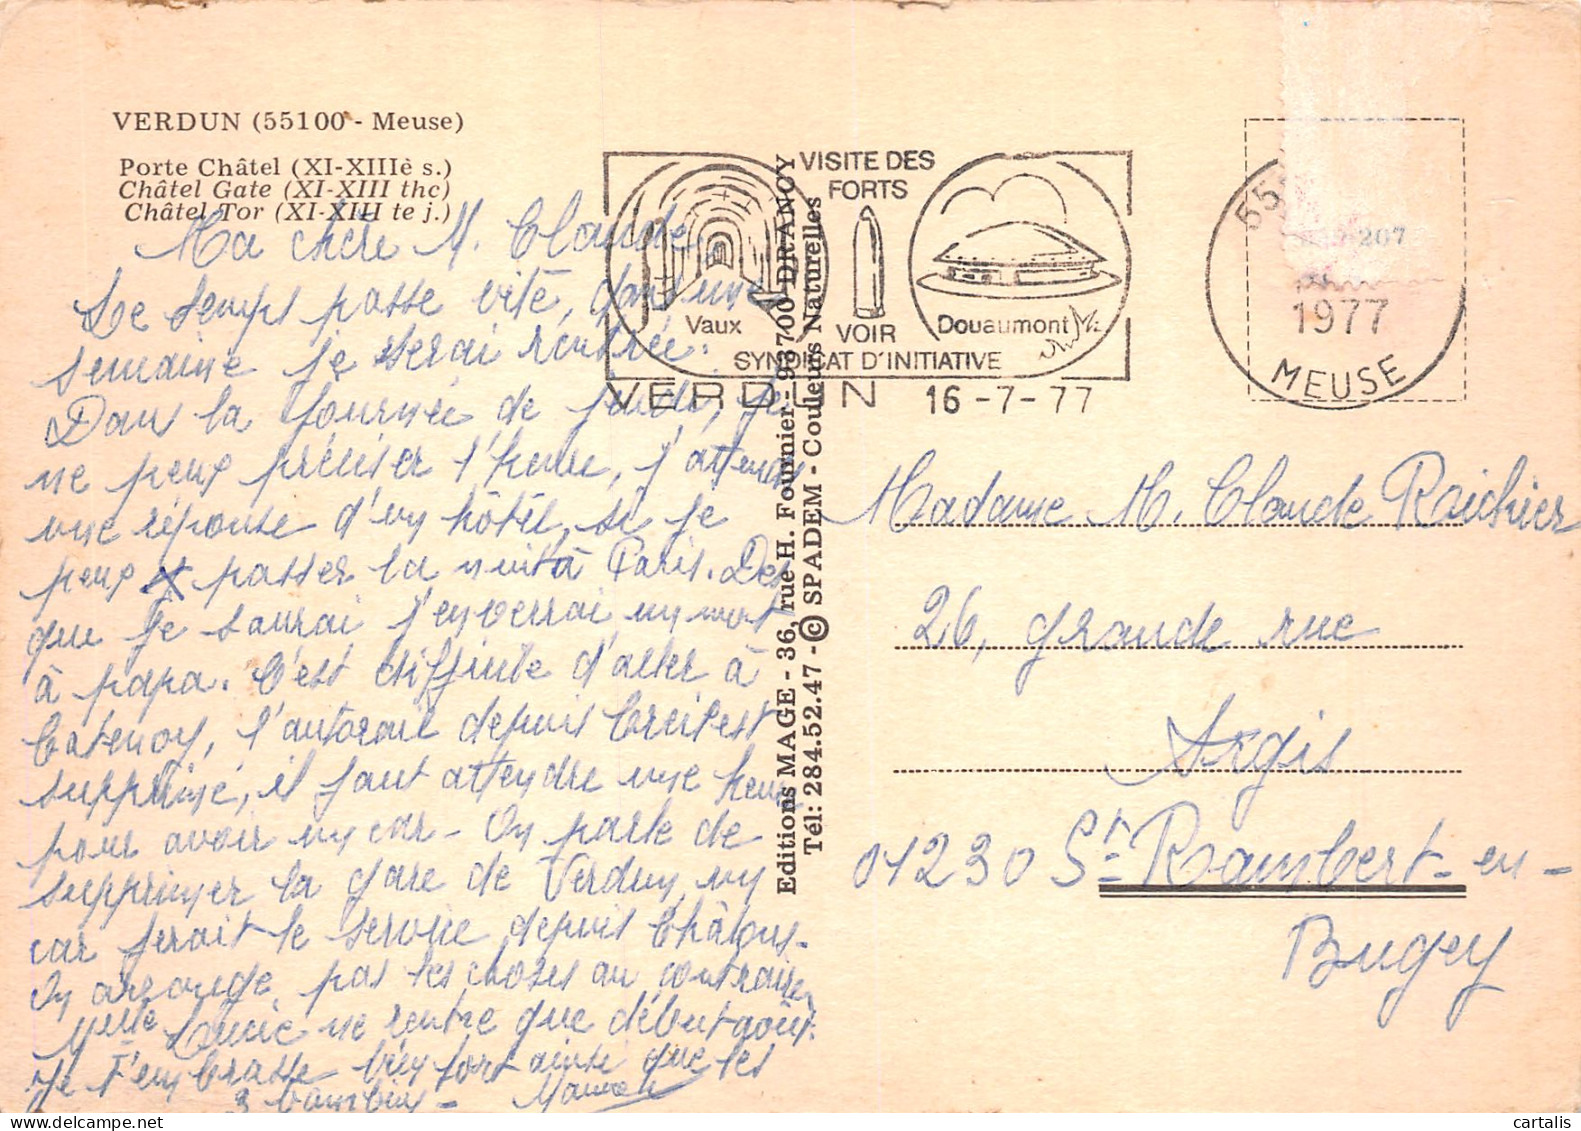 VERDUN (55100 - Meuse)
Porte Châtel (XI-XIIIè s.)
Châtel Gate (XI-XIII thc)
Châtel Tor (XI-XIII te j.)
Ma chère M. Claude
Le temps passe vite, dans une
semaine je serai rentrée.
Dans la journée de jeudi, je
ne peux préciser l'heure, j'attends
une réponse d'un hôtel, si je
peux passer la nuit à Paris. Dès
que je saurai j'enverrai un mot
à papa. C'est difficile d'aller à
Catenoy, l'autorail depuis Creil est
supprimé, il faut attendre une heure
pour avoir un car - On parle de
supprimer la gare de Verdun, un
car ferait le service depuis Châlons.
On arrange pas les choses au contraire.
Melle Lucie ne rentre que début août.
Je t'embrasse bien fort ainsi que les
3
VISITE DES
FORTS
Vaux
VOIR
Douaumont
SYNDICAT D'INITIATIVE
VERDUN 16 - 7 - 77
55
207
1977
MEUSE
Editions MAGE - 36, rue H. Fournier - 93700 DRANCY
Tél: 284.52.47 - © SPADEM - Couleurs Naturelles
Madame M. Claude Richier
26, grande rue
Argis
01230 St Rambert-en-
Bugey
cartalis